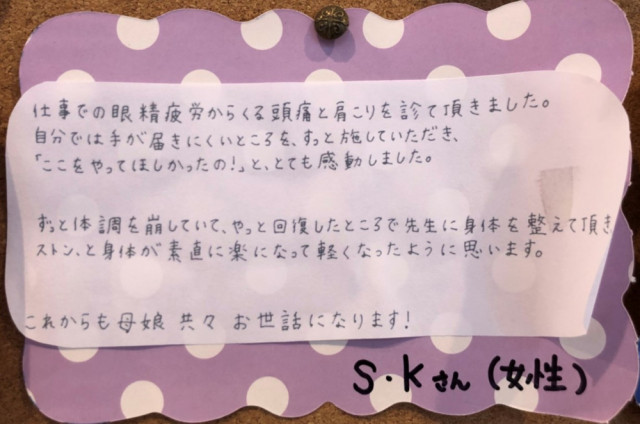 仕事での眼精疲労からくる頭痛と肩こりを診て頂きました。
自分では手が届きにくいところを、ずっと施していただき、
「ここをやってほしかったの!」と、とても感動しました。
ずっと体調を崩していて、やっと回復したところで先生に身体を整えて頂き
ストン、と身体が素直に楽になって軽くなったように思います。
これからも母娘共々お世話になります!
S・Kさん(女性)